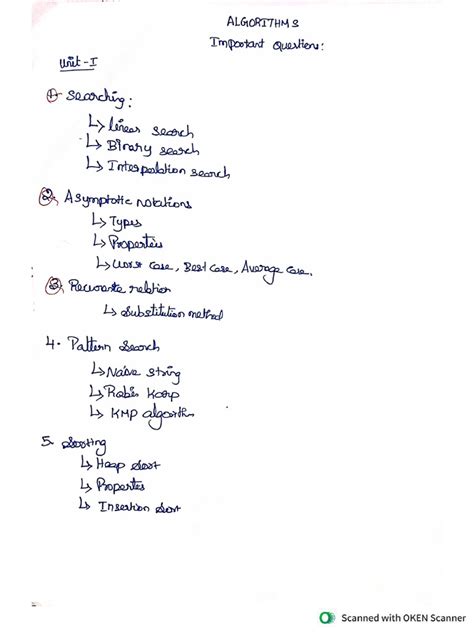 ALGORITHMS
Important Questions:
Unit - I
1. Searching:
↳ linear search
↳ Binary search
↳ Interpolation search
2. Asymptotic notations
↳ Types
↳ Properties
↳ Worst case, Best case, Average case.
3. Recurrence relation
↳ Substitution method
4. Pattern Search
↳ Naive string
↳ Rabin Karp
↳ KMP algorithm
5. Sorting
↳ Heap sort
↳ Properties
↳ Insertion sort
Scanned with OKEN Scanner